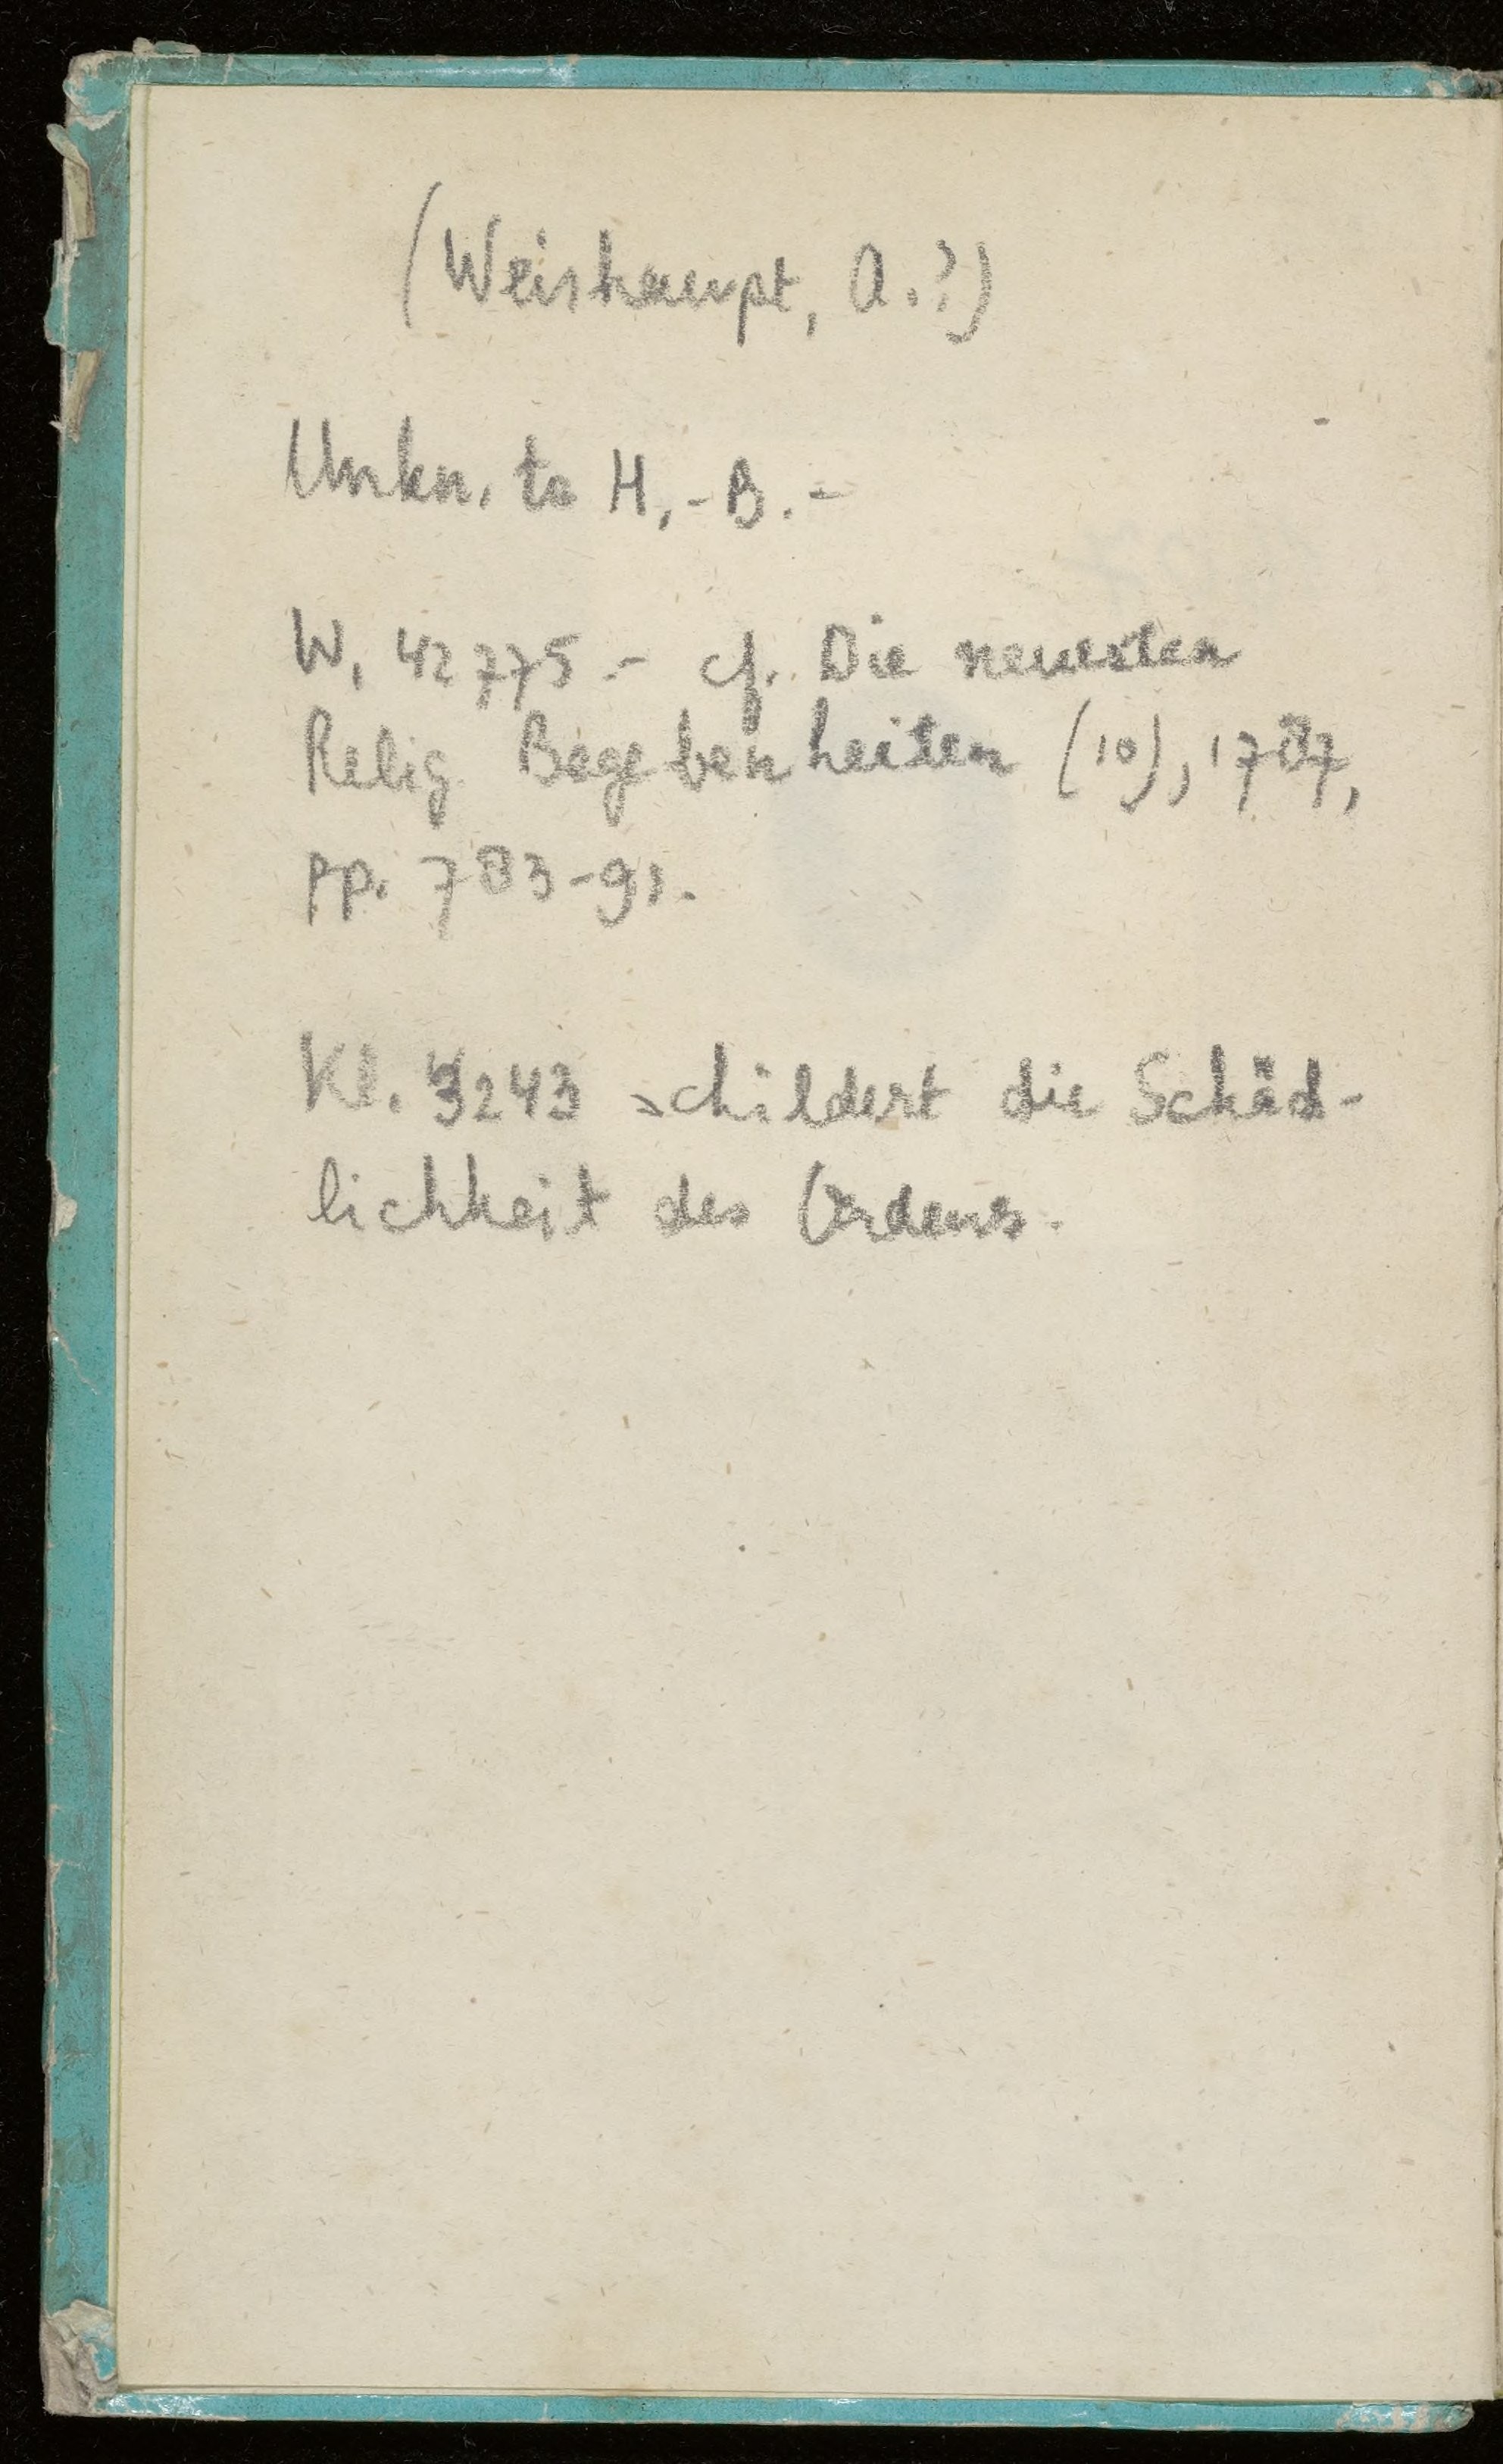 (Weishaupt, A.?)
Unkn. to H.-B.-
W. 42775 - cf. Die neuesten
Relig. Begebenheiten (10), 1787,
pp. 783-91.
Kl. 3243 schildert die Schäd-
lichkeit des Ordens.